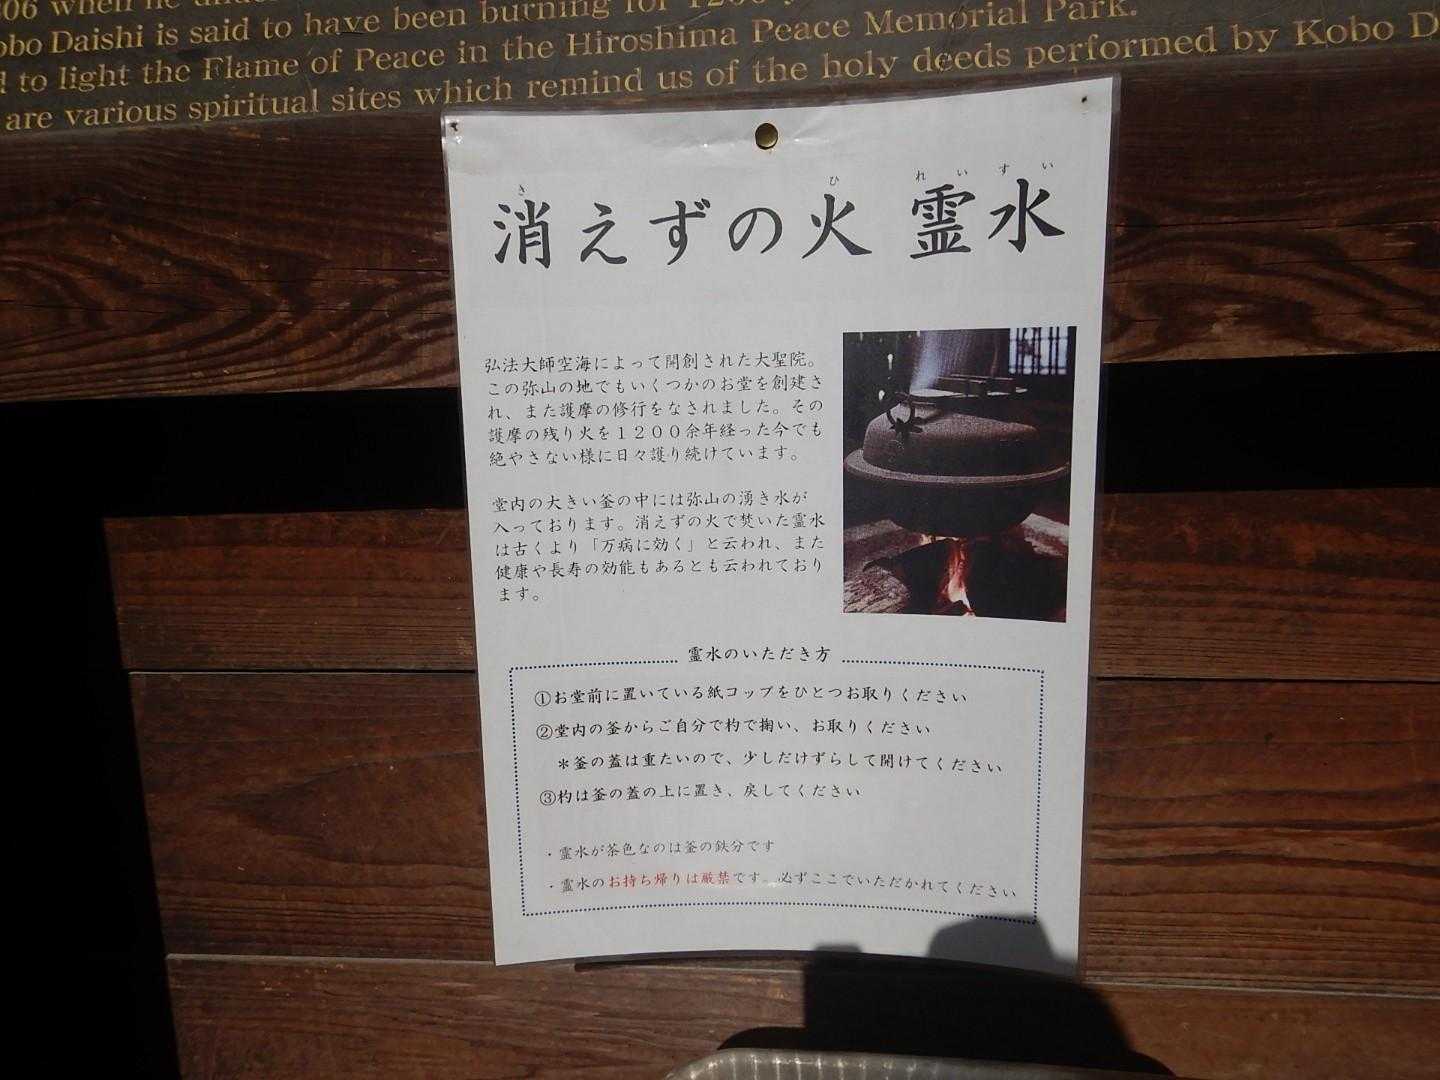 06 when he
obo Daishi is said to have been burning for 1200
to light the Flame of Peace in the Hiroshima Peace Memorial Park.
are various spiritual sites which remind us of the holy deeds performed by Kobo D
き ひ れいすい
消えずの火 霊水
弘法大師空海によって開創された大聖院。
この弥山の地でもいくつかのお堂を創建さ
れ、また護摩の修行をなされました。その
護摩の残り火を1200余年経った今でも
絶やさない様に日々護り続けています。
堂内の大きい釜の中には弥山の湧き水が
入っております。消えずの火で焚いた霊水
は古くより「万病に効く」と云われ、また
健康や長寿の効能もあるとも云われており
ます。
霊水のいただき方
①お堂前に置いている紙コップをひとつお取りください
②堂内の釜からご自分で杓で掬い、お取りください
＊釜の蓋は重たいので、少しだけずらして開けてください
③杓は釜の蓋の上に置き、戻してください
・霊水が茶色なのは釜の鉄分です
・霊水のお持ち帰りは厳禁です。必ずここでいただかれてください